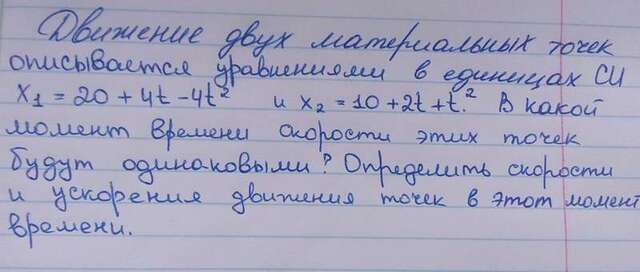 Движение двух материальных точек
описывается уравнениями в единицах СИ
x₁ = 20 + 4t - 4t² и x₂ = 10 + 2t + t.² В какой
момент времени скорости этих точек
будут одинаковыми? Определить скорости
и ускорения движения точек в этот момент
времени.